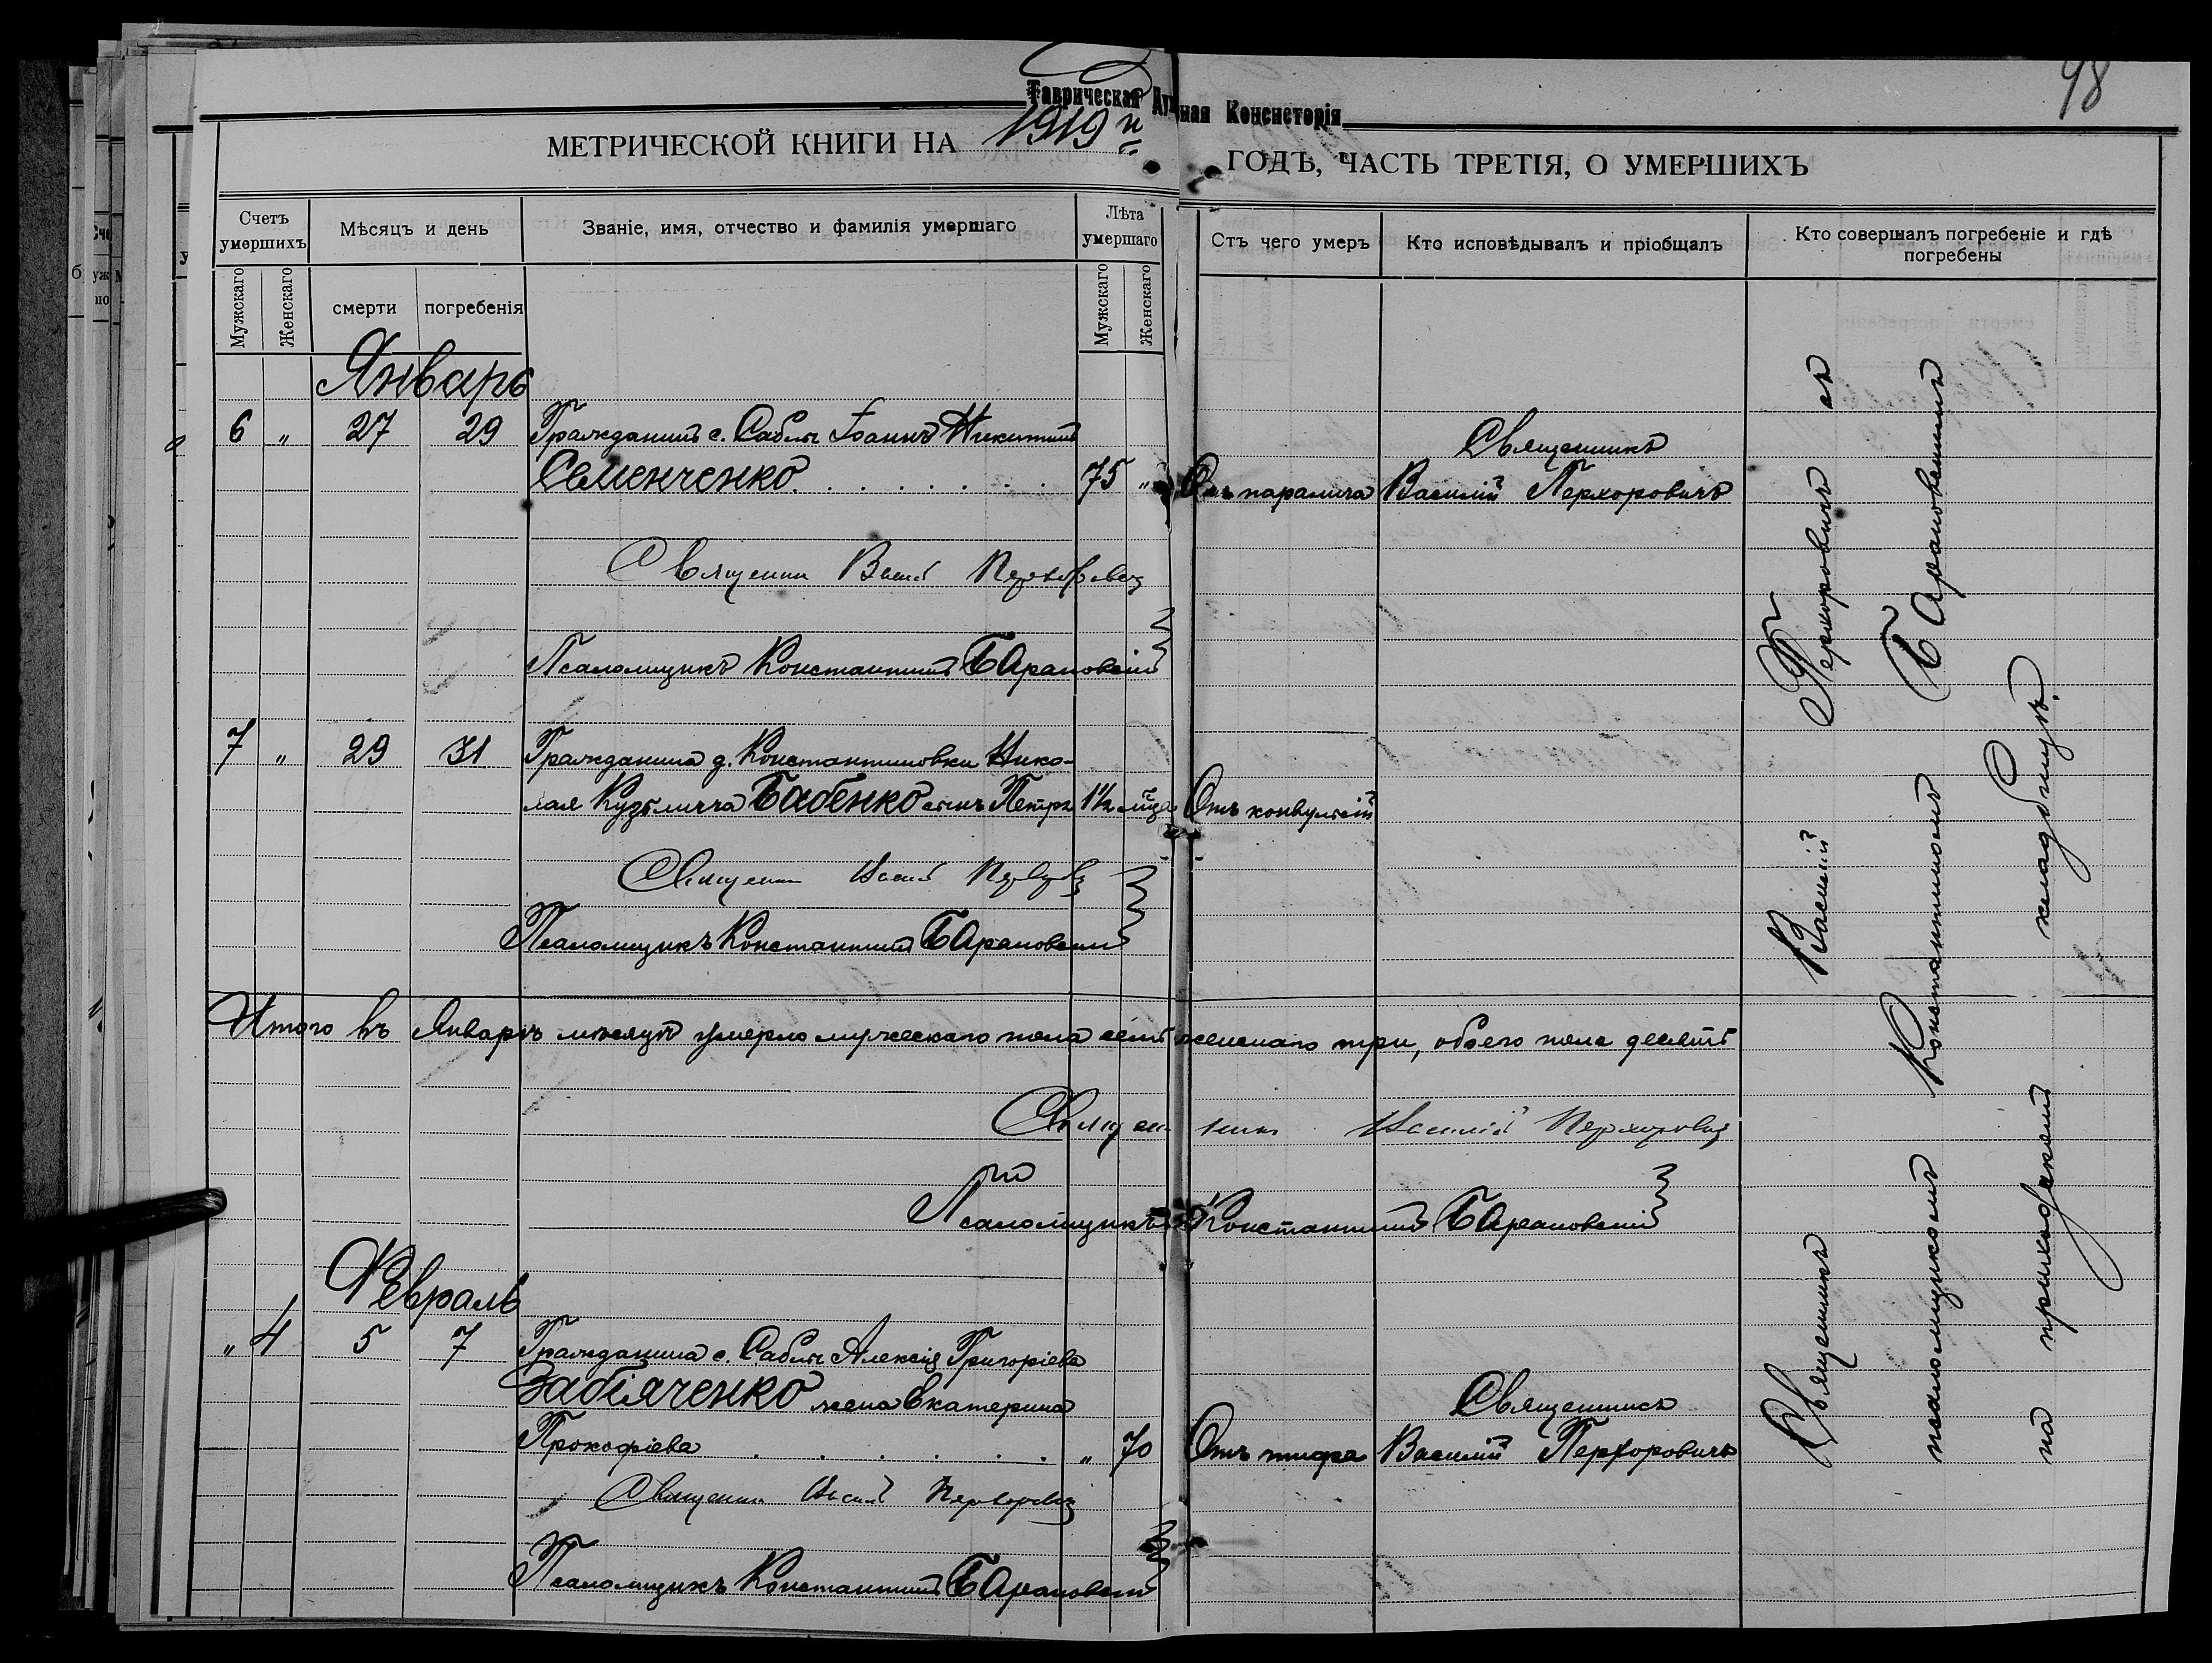 98
Таврическая Духовная Консисторія
МЕТРИЧЕСКОЙ КНИГИ НА 1919й ГОДЪ, ЧАСТЬ ТРЕТІЯ, О УМЕРШИХЪ
Счетъ умершихъ
Мѣсяцъ и день
Званіе, имя, отчество и фамилія умершаго
Лѣта умершаго
Отъ чего умеръ
Кто исповѣдывалъ и пріобщалъ
Кто совершалъ погребеніе и гдѣ погребены
Мужскаго
Женскаго
смерти
погребенія
Мужскаго
Женскаго
Январь
6 " 27 29 Гражданинъ с. Саблы Іоаннъ Никитинъ
Священникъ
Семенченко 75 " Отъ паралича Василій Перхоровичъ
Священникъ Василій Перхоровичъ
Псаломщикъ Константинъ Барановскій
7 " 29 31 Гражданина д. Константиновки Нико-
лая Кузьмича Бабенко сынъ Петръ 1½ мѣс. Отъ конвульсій
Священникъ Василій Перхоровичъ
Псаломщикъ Константинъ Барановскій
Итого въ Январѣ мѣсяцѣ умерло мужескаго пола семь женскаго три, обоего пола десять
Священникъ Василій Перхоровичъ
Псаломщикъ Константинъ Барановскій
Февраль
" 4 5 7 Гражданина с. Саблы Алексія Григоріева
Забіяченко жена Екатерина
Священникъ
Прокофіева " 70 Отъ тифа Василій Перхоровичъ
Священникъ Василій Перхоровичъ
Псаломщикъ Константинъ Барановскій
Священникъ Василій Перхоровичъ съ
псаломщикомъ Константиномъ Барановскимъ
на приходскомъ кладбищѣ.